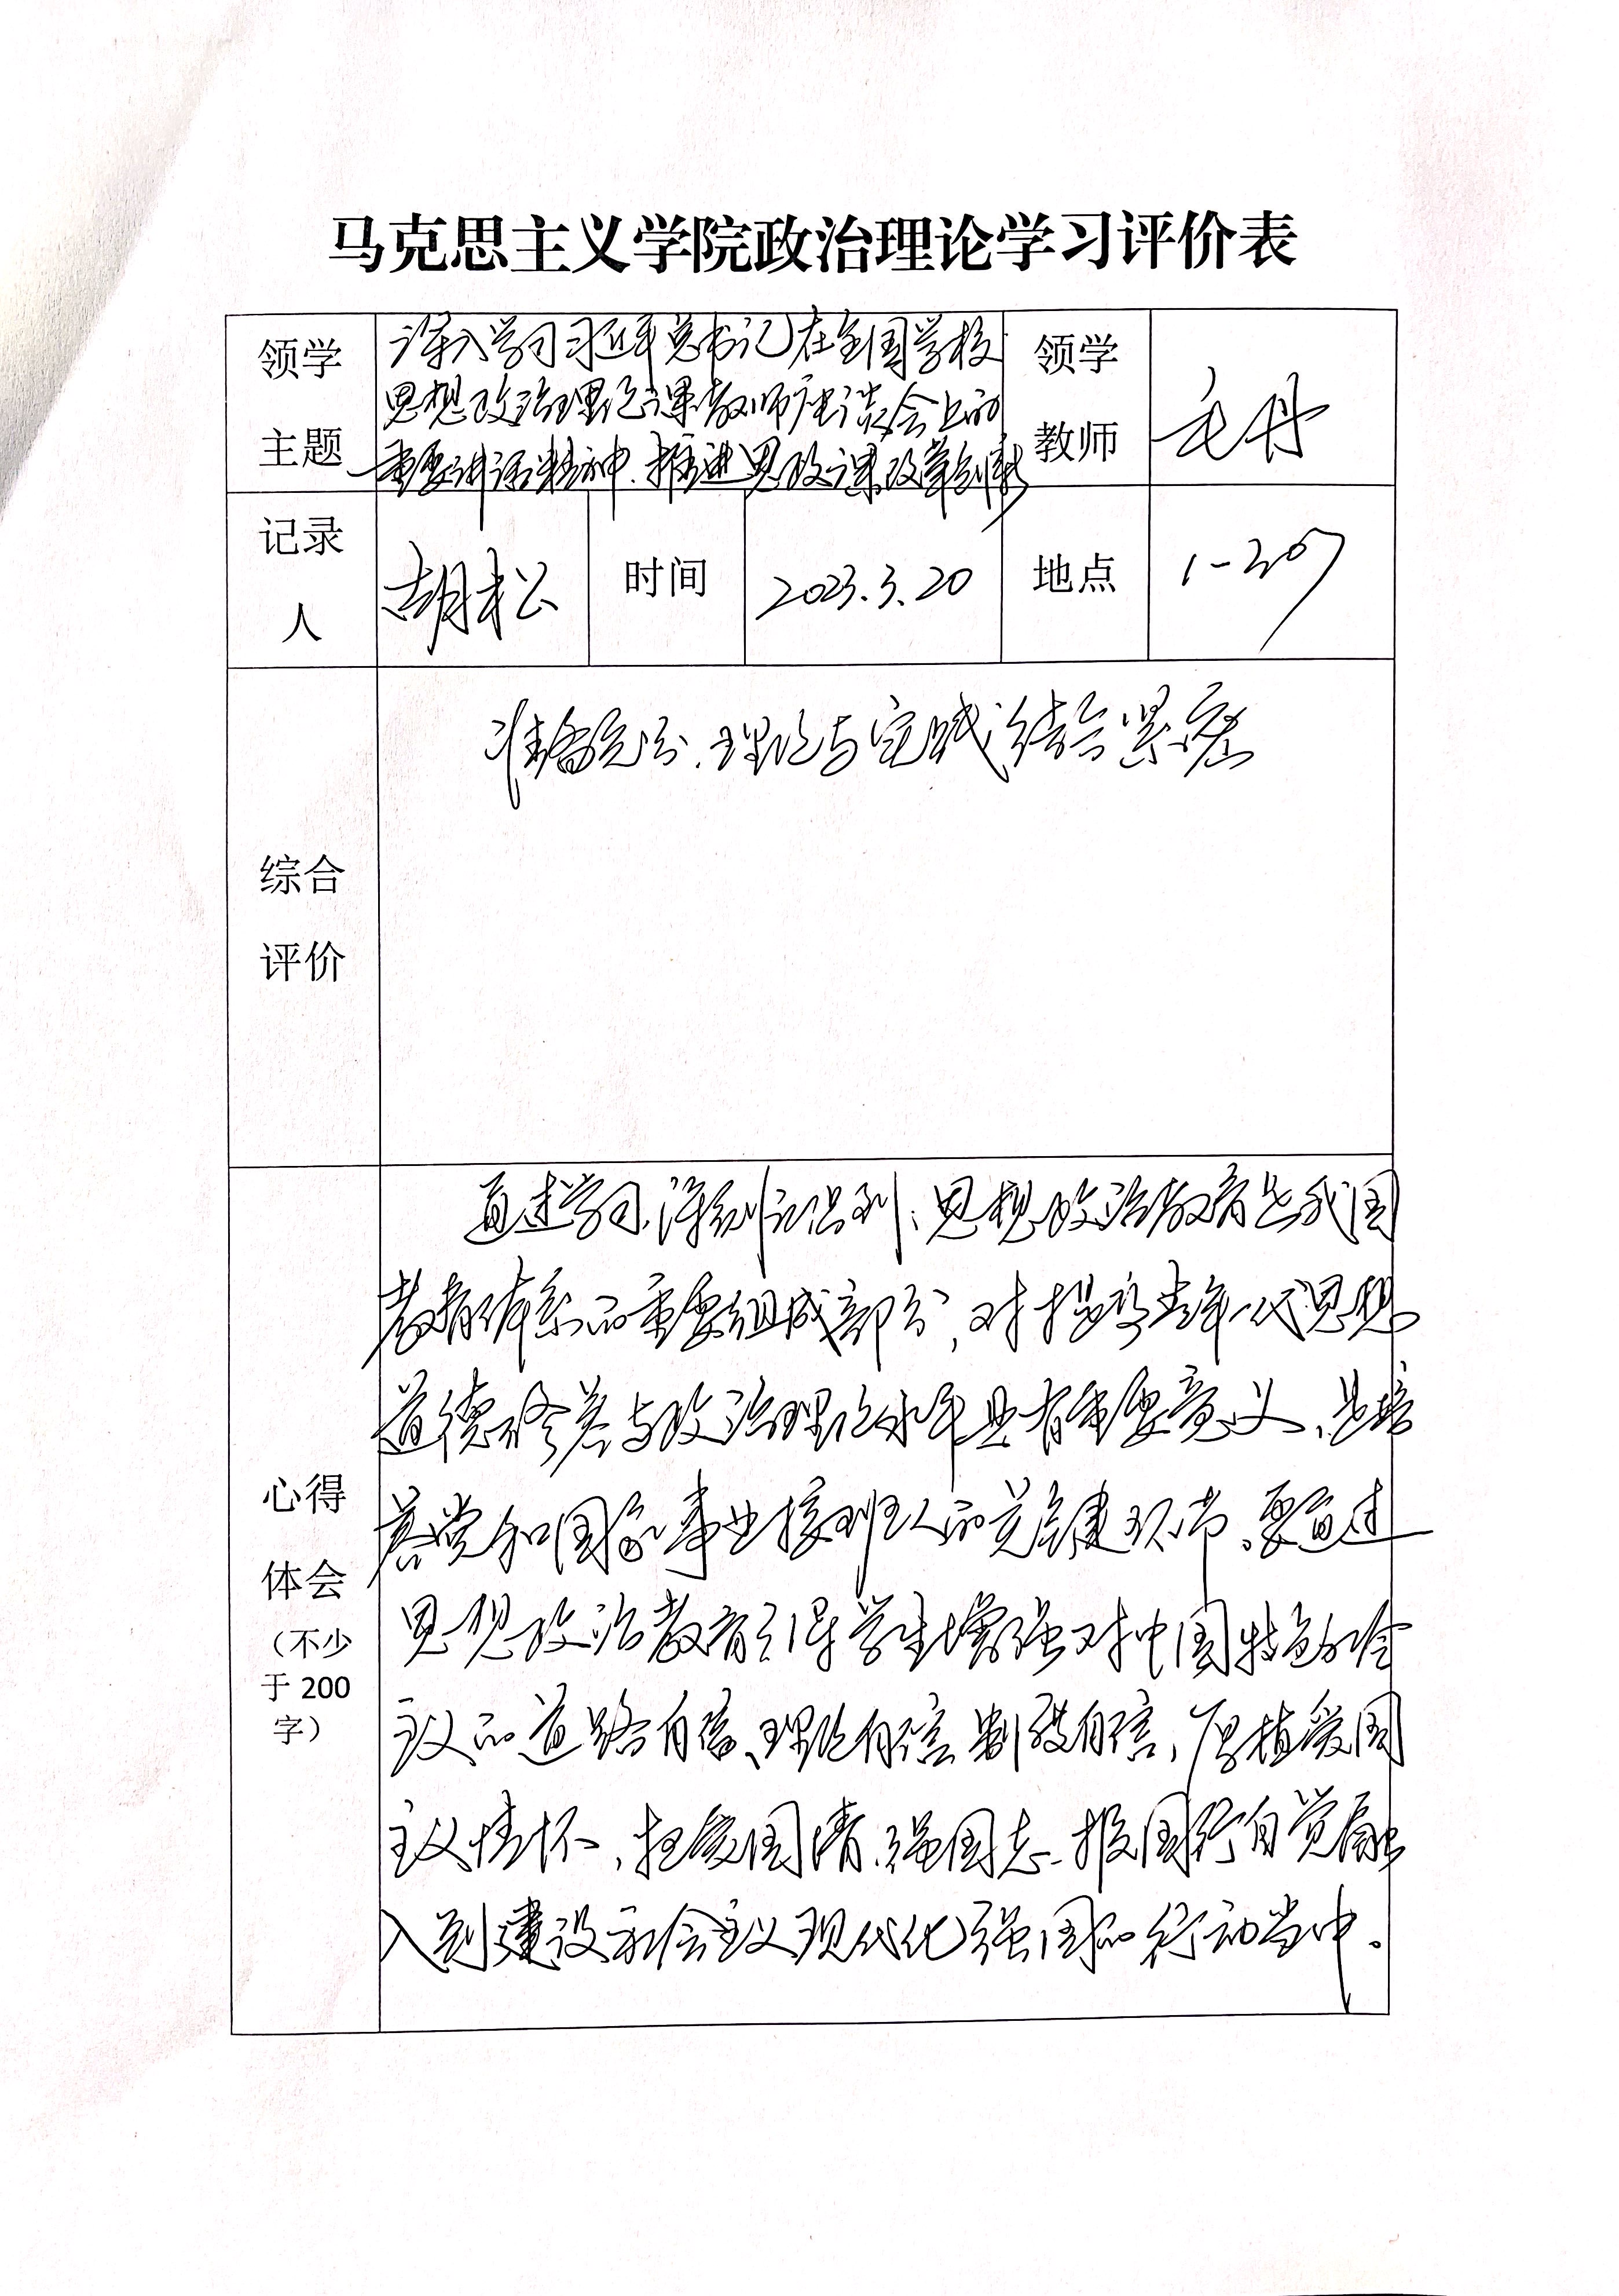 马克思主义学院政治理论学习评价表
领学主题
深入学习习近平总书记在全国学校
思想政治理论课教师座谈会上的
重要讲话精神,推进思政课改革创新
领学教师
记录人
胡松
时间
2023.3.20
地点
1-207
综合评价
准备充分,理论与实践结合紧密
心得体会(不少于200字)
通过学习,深刻认识到,思想政治教育是我国
教育体系的重要组成部分,对提高青年一代思想
道德修养与政治理论水平具有重要意义,是培
养党和国家事业接班人的关键环节,要通过
思想政治教育引导学生增强对中国特色社会
主义的道路自信、理论自信、制度自信,厚植爱国
主义情怀,把爱国情、强国志、报国行自觉融
入到建设社会主义现代化强国的行动当中。